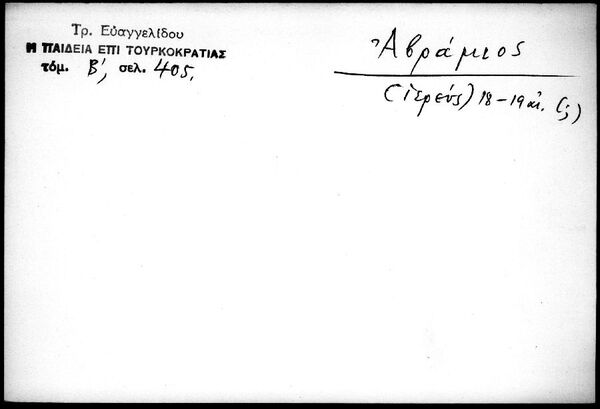 Τρ. Εὐαγγελίδου
Η ΠΑΙΔΕΙΑ ΕΠΙ ΤΟΥΡΚΟΚΡΑΤΙΑΣ
τόμ. Β', σελ. 405.
Ἀβράμιος
(ἱερεύς) 18-19 αἰ. (;)